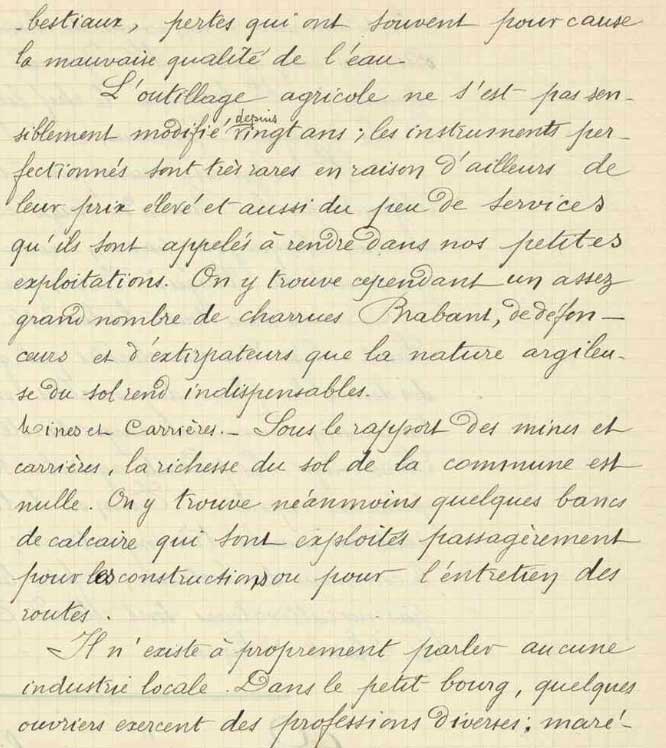 bestiaux, pertes qui ont souvent pour cause
la mauvaise qualité de l'eau
L'outillage agricole ne s'est pas sen-
siblement modifié depuis vingt ans ; les instruments per-
fectionnés sont très rares en raison d'ailleurs de
leur prix élevé et aussi du peu de services
qu'ils sont appelés à rendre dans nos petites
exploitations. On y trouve cependant un assez
grand nombre de charrues Brabant, de défon-
ceurs et d'extirpateurs que la nature argileu-
se du sol rend indispensables.
Mines et Carrières. - Sous le rapport des mines et
carrières, la richesse du sol de la commune est
nulle. On y trouve néanmoins quelques bancs
de calcaire qui sont exploités passagèrement
pour les constructions ou pour l'entretien des
routes.
Il n'existe à proprement parler aucune
industrie locale. Dans le petit bourg, quelques
ouvriers exercent des professions diverses : maré-